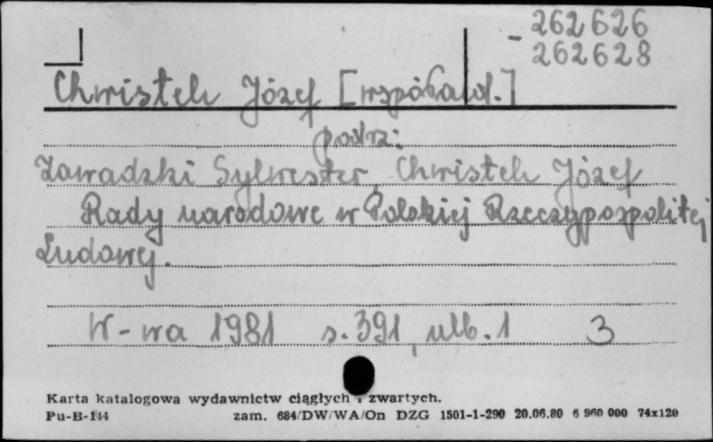 - 262626
262628
Chwistek Józef [współaut.]
podrz:
Zawadzki Sylwester, Chwistek Józef
Rady narodowe w Polskiej Rzeczypospolitej
Ludowej.
W-wa 1981 s. 391, ulb. 1 3
Karta katalogowa wydawnictw ciągłych i zwartych.
Pu-B-144 zam. 684/DW/WA/On DZG 1501-1-290 20.06.80 6 960 000 74x120